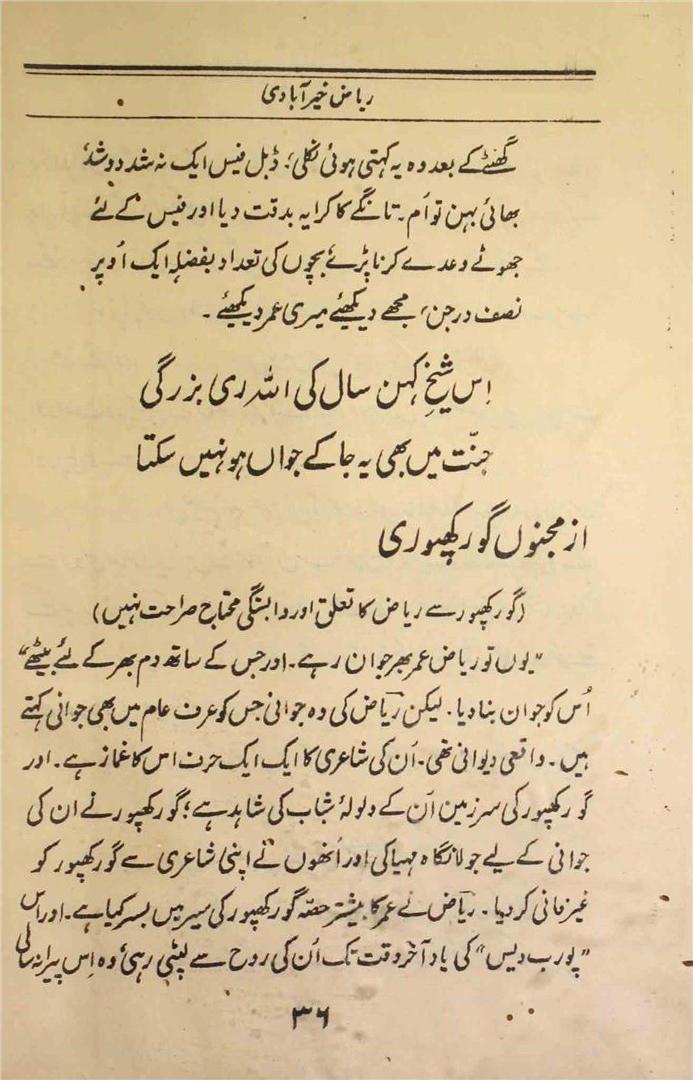 ریاض خیرآبادی
گھنٹے کے بعد وہ یہ کہتی ہوئی نکلی؛ ڈبل فیس ایک نہ شد دو شد؛
بھائی بہن تواَم۔ تانگے کا کرایہ بدقت دیا اور فیس کے لئے
جھوٹے وعدے کرنا پڑے بچوں کی تعداد بفضلہٖ ایک اُوپر
نصف درجن؛ مجھے دیکھئے میری عمر دیکھئے۔
اِس شیخِ کہن سال کی اللہ ری بزرگی
جنّت میں بھی یہ جا کے جواں ہو نہیں سکتا
از مجنوں گورکھپوری
(گورکھپور سے ریاض کا تعلق اور وابستگی محتاجِ صراحت نہیں)
"یوں تو ریاض عمر بھر جوان رہے۔ اور جس کے ساتھ دم بھر کے لئے بیٹھے"
اُس کو جوان بنا دیا۔ لیکن ریاؔض کی وہ جوانی جس کو عرف عام میں بھی جوانی کہتے
ہیں۔ واقعی دیوانی تھی۔ اُن کی شاعری کا ایک ایک حرف اس کا غماز ہے۔ اور
گورکھپور کی سرزمین اُن کے ولولۂ شباب کی شاہد ہے؛ گورکھپور نے ان کی
جوانی کے لیے جولانگاہ مہیا کی اور اُنھوں نے اپنی شاعری سے گورکھپور کو
غیر فانی کر دیا۔ ریاؔض نے عمر کا بیشتر حصّہ گورکھپور کی سیر میں بسر کیا ہے۔ اور اس
"پورب دیس" کی یاد آخر وقت تک اُن کی روح سے لپٹی رہی؛ وہ اِس پیرانہ سالی
۳۶